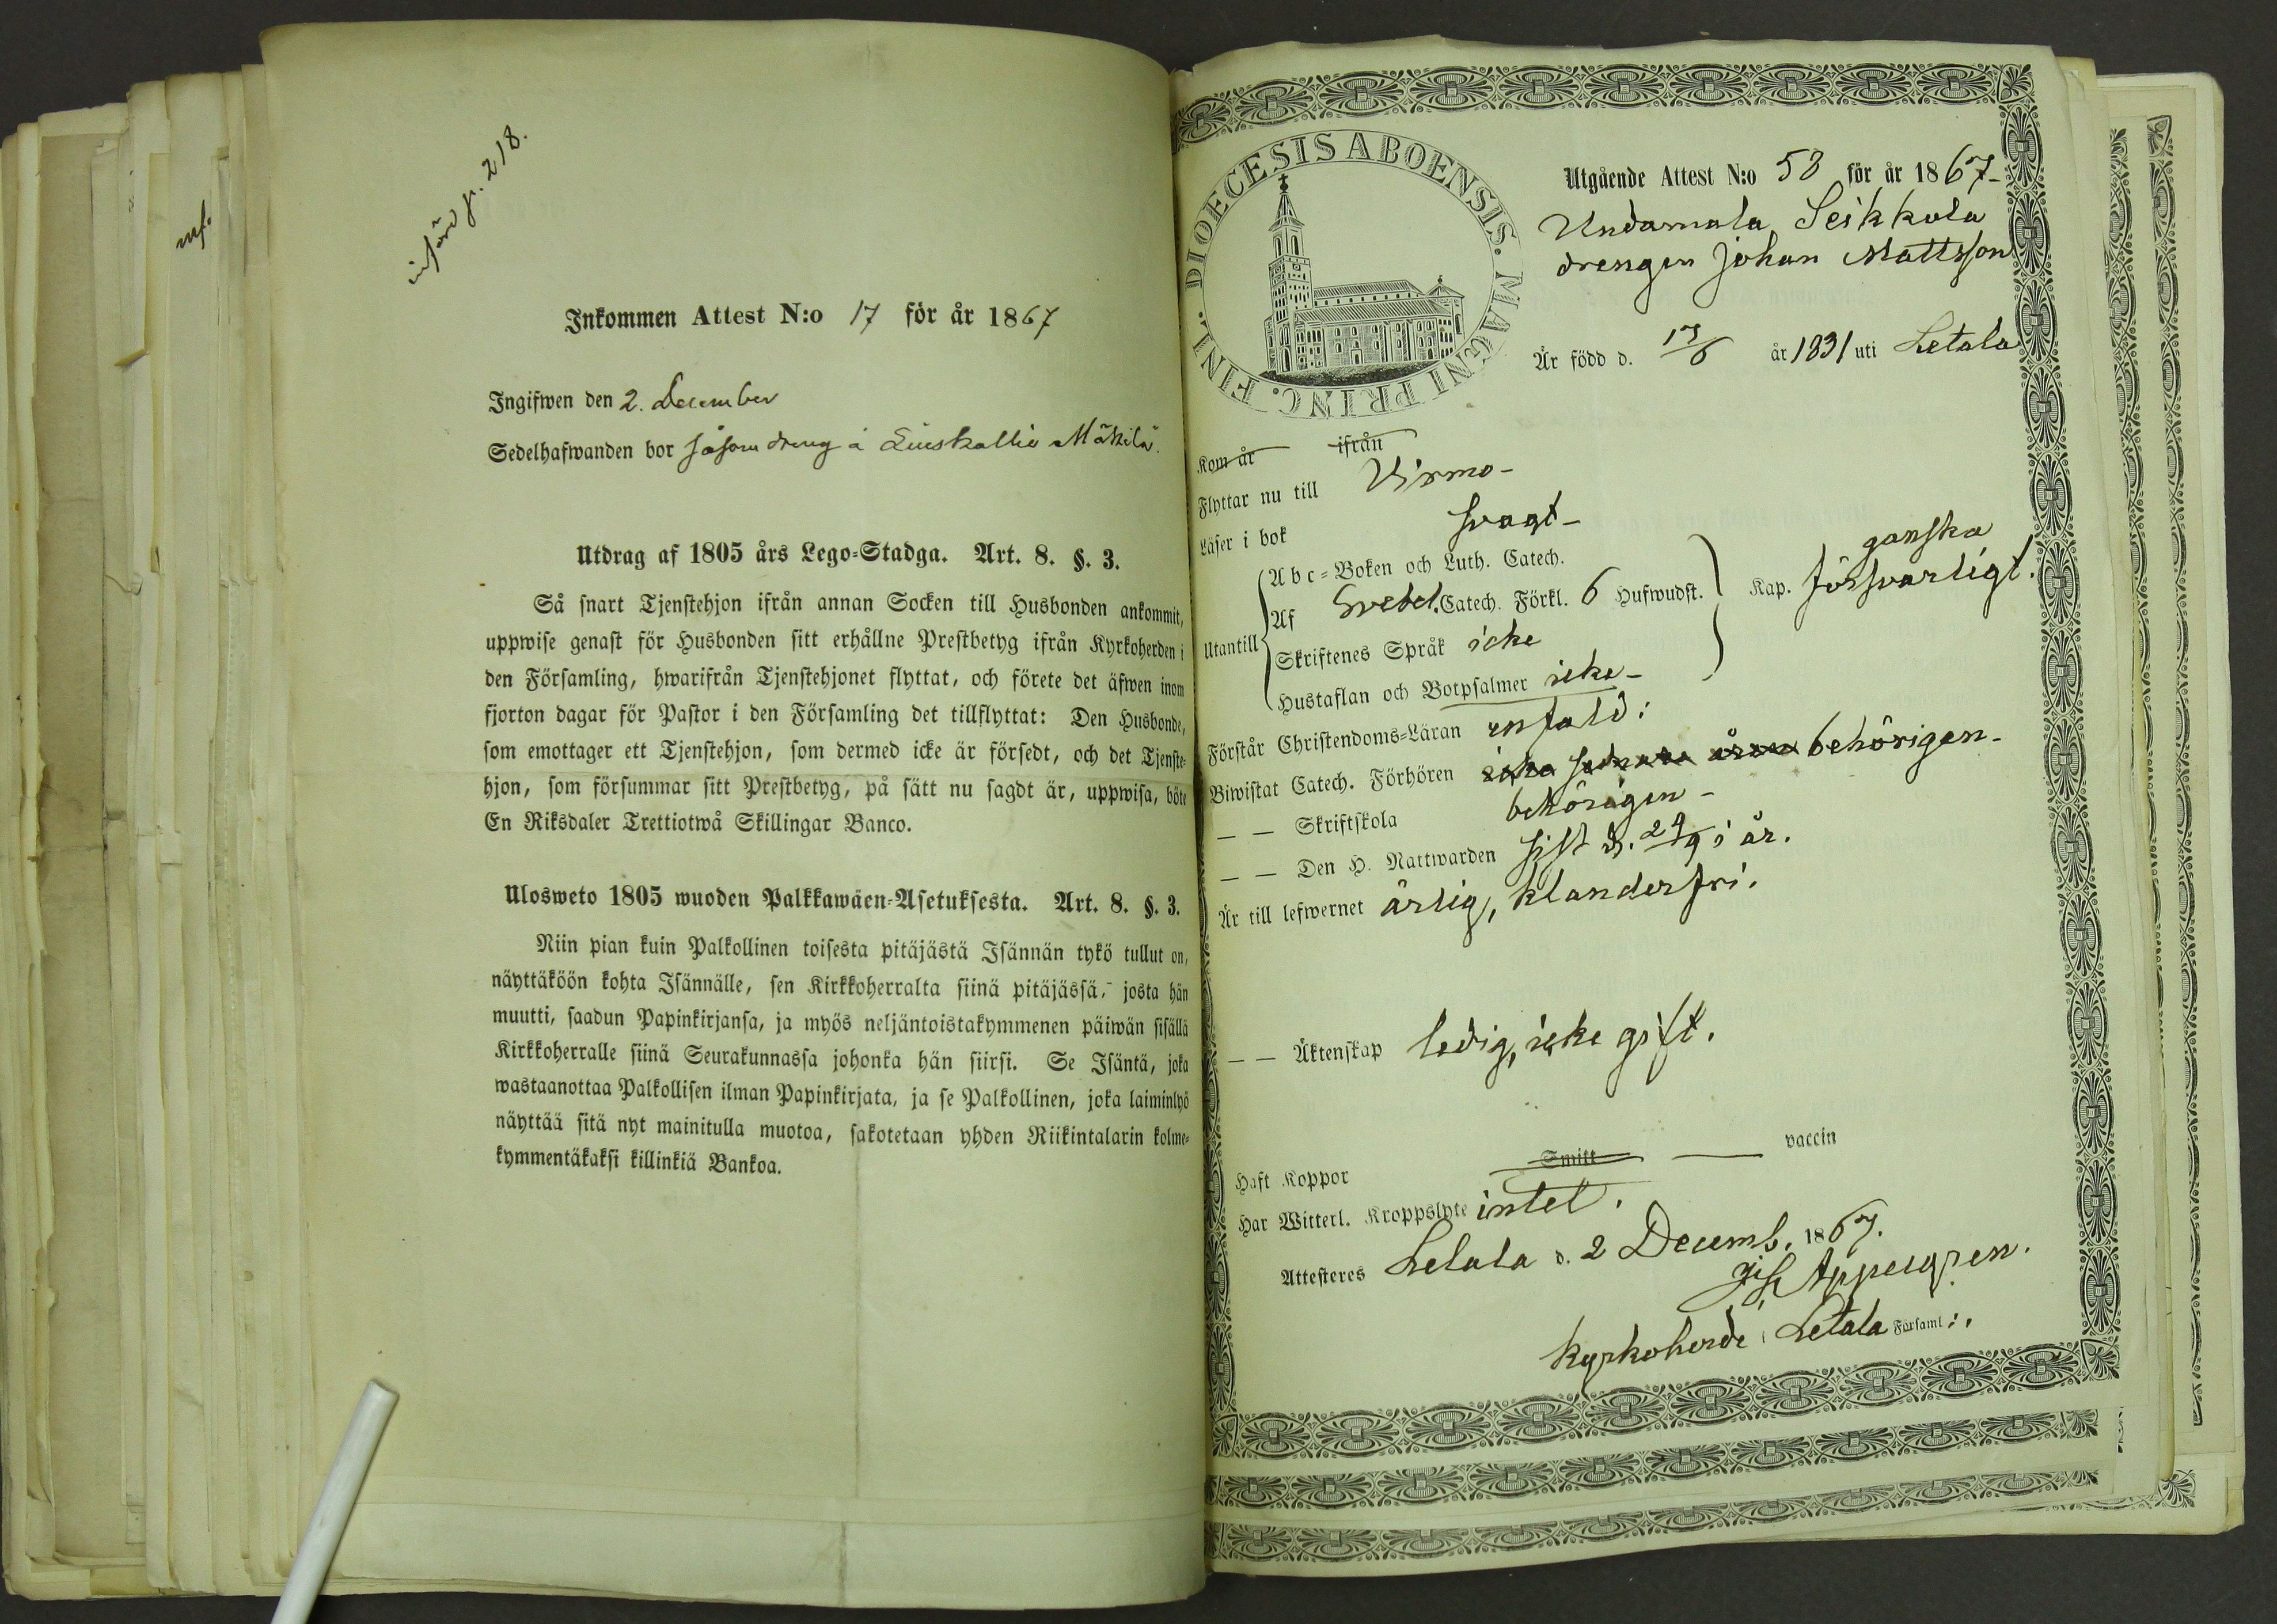 införd p. 218.
Inkommen Attest N:o 17 för år 1867
Ingifwen den 2. December
Sedelhafwanden bor såsom dreng å Lieskallio Mäkilä.
Utdrag af 1805 års Lego-Stadga. Art. 8. §. 3.
Så snart Tjenstehjon ifrån annan Socken till Husbonden ankommit,
uppwise genast för Husbonden sitt erhållne Prestbetyg ifrån Kyrkoherden i
den Församling, hwarifrån Tjenstehjonet flyttat, och förete det äfwen inom
fjorton dagar för Pastor i den Församling det tillflyttat: Den Husbonde,
som emottager ett Tjenstehjon, som dermed icke är försedt, och det Tjenste-
hjon, som försummar sitt Prestbetyg, på sätt nu sagdt är, uppwisa, böte
En Riksdaler Trettiotwå Skillingar Banco.
Ulosweto 1805 wuoden Palkkawäen-Asetuksesta. Art. 8. §. 3.
Niin pian kuin Palkollinen toisesta pitäjästä Isännän tykö tullut on,
näyttäköön kohta Isännälle, sen Kirkkoherralta siinä pitäjässä, josta hän
muutti, saadun Papinkirjansa, ja myös neljäntoistakymmenen päiwän sisällä
Kirkkoherralle siinä Seurakunnassa johonka hän siirsi. Se Isäntä, joka
wastaanottaa Palkollisen ilman Papinkirjata, ja se Palkollinen, joka laiminlyö
näyttää sitä nyt mainitulla muotoa, sakotetaan yhden Riikintalarin kolme-
kymmentäkaksi killinkiä Bankoa.
DIOECESIS ABOENSIS. MAGNI PRINC. FINL.
Utgående Attest N:o 58 för år 1867
Undamala Seikkola
drengen Johan Mattsson
Är född d. 17/6 år 1831 uti Letala
Kom år ifrån
Flyttar nu till Virmo-
Läser i bok svagt-
Utantill
Abc-Boken och Luth. Catech.
Af Svebel. Catech. Förkl. 6 Hufwudst.
Skriftenes Språk icke
Hustaflan och Botpsalmer icke-
Kap. ganska
försvarligt.
Förstår Christendoms-Läran enfald:
Biwistat Catech. Förhören icke sednare åren behörigen-
— — Skriftskola behörigen-
— — Den H. Nattwarden sist d. 29/9 i år.
Är till lefwernet ärlig, klanderfri.
— — Äktenskap ledig, icke gift.
Haft Koppor Smitt vaccin
Har Witterl. Kroppslyte intet.
Attesteres Letala d. 2 Decemb. 1867.
Appelgren.
Kyrkoherde i Letala Församl:.